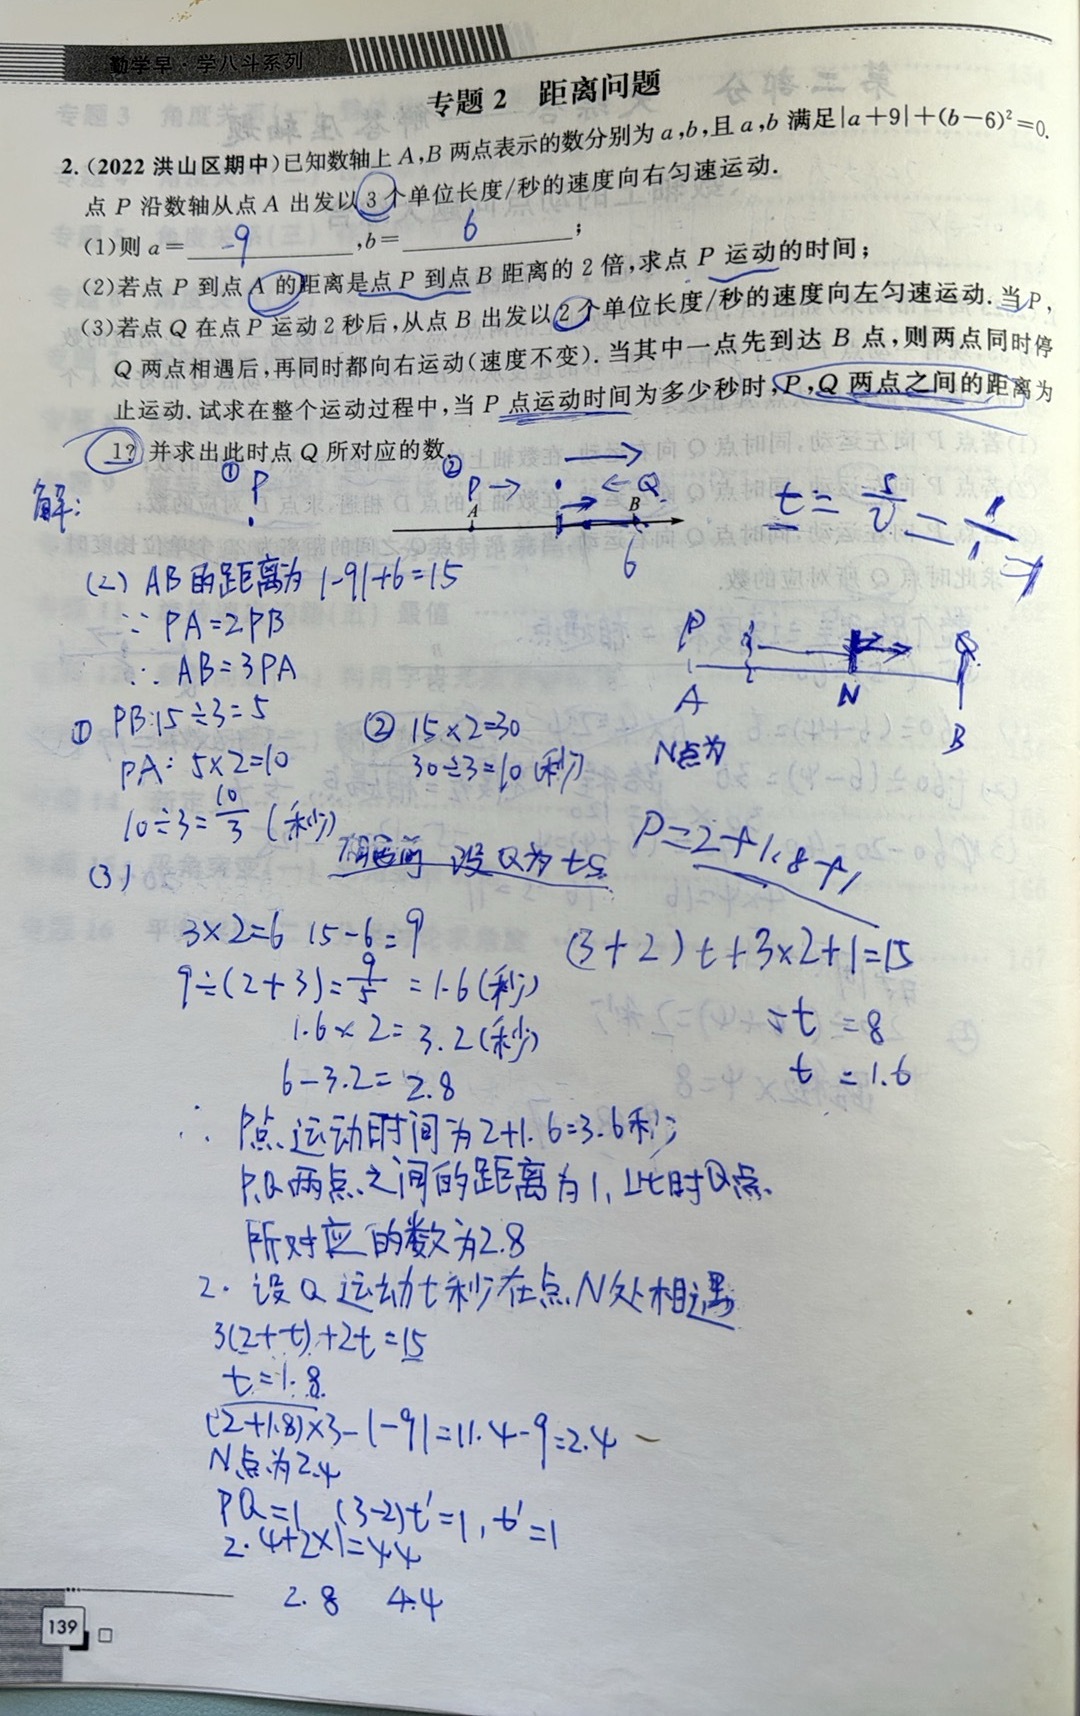 勤学早·学八斗系列
专题2 距离问题
2.(2022洪山区期中)已知数轴上A,B两点表示的数分别为a,b,且a,b满足|a+9|+(b-6)²=0.
点P沿数轴从点A出发以3个单位长度/秒的速度向右匀速运动.
(1)则a=-9,b=6;
(2)若点P到点A的距离是点P到点B距离的2倍,求点P运动的时间;
(3)若点Q在点P运动2秒后,从点B出发以2个单位长度/秒的速度向左匀速运动.当P,
Q两点相遇后,再同时都向右运动(速度不变).当其中一点先到达B点,则两点同时停
止运动.试求在整个运动过程中,当P点运动时间为多少秒时,P,Q两点之间的距离为
1?并求出此时点Q所对应的数.
解:
① P
② P→ ←Q
A B
6
(2) AB的距离为|-9|+6=15
∵ PA=2PB
∴ AB=3PA
P
A N B
N点为
① PB:15÷3=5
PA: 5×2=10
10÷3=10/3 (秒)
② 15×2=30
30÷3=10(秒)
(3) 相遇前 设Q为ts
P=2+1.8+1
3×2=6 15-6=9
9÷(2+3)=9/5 =1.6(秒)
1.6×2=3.2(秒)
6-3.2=2.8
(3+2)t+3×2+1=15
5t=8
t=1.6
∴ P点运动时间为2+1.6=3.6秒
P.Q两点之间的距离为1,此时Q点
所对应的数为2.8
2. 设Q运动t秒在点N处相遇
3(2+t)+2t=15
t=1.8
(2+1.8)×3-|-9|=11.4-9=2.4
N点为2.4
PQ=1 (3-2)t'=1,t'=1
2.4+2×1=4.4
2.8 4.4
139